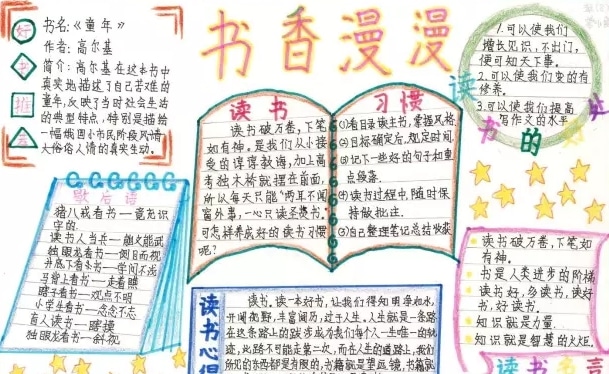 书香漫漫
好
书
推
书名:《童年》
作者: 高尔基
简介: 高尔基在这本书中
真实地描述了自己苦难的
童年,反映了当时社会生活
的典型特点,特别是描绘
一幅俄国小市民阶段风情
大俗俗人情的真实生动.
读书
读书破万卷,下笔
如有神.是我们从小接
受的谆谆教诲,加上高
考独木桥就摆在前面,
所以每天只能"两耳不闻
窗外事,一心只读圣贤书."
可怎样养成好的读书习惯
呢?
习惯
①看目录读主书,掌握风格
②目标确定后,规定时间.
③记下一些好的句子和重
点段落.
④读书过程中,随时保
持做批注.
⑤自己整理笔记总结收获
读书的好处
1.可以使我们
增长见识,不出门,
便可知天下事.
2.可以使我们变的有
修养.
3.可以使我们提高
写作文的水平
歇后语
猪八戒看书—竟充识
字的.
读书人当兵—能文能武
独眼龙看书—侧目而视
井底下看书—学问不浅
马背上看书—走着瞧
瞎子看书—观点不明
小学生看书—念念不忘
盲人读书—瞎摸
独眼龙看书—斜视
读书心得
读书,读一本好书,让我们得知明净如水,
开阔视野,丰富阅历,过于人生.人生就是一条路
在这条路上的跋涉成为我们每个人一生唯一的轨
迹,此路不可能走第二次,而在人生的道路上,我们
所见的东西都是有限的,书籍就是望远镜,书籍就
读书破万卷,下笔如
有神.
书是人类进步的阶梯
读书好,多读书,读好
书,好读书.
知识就是力量.
知识就是智慧的火炬.
读书名言